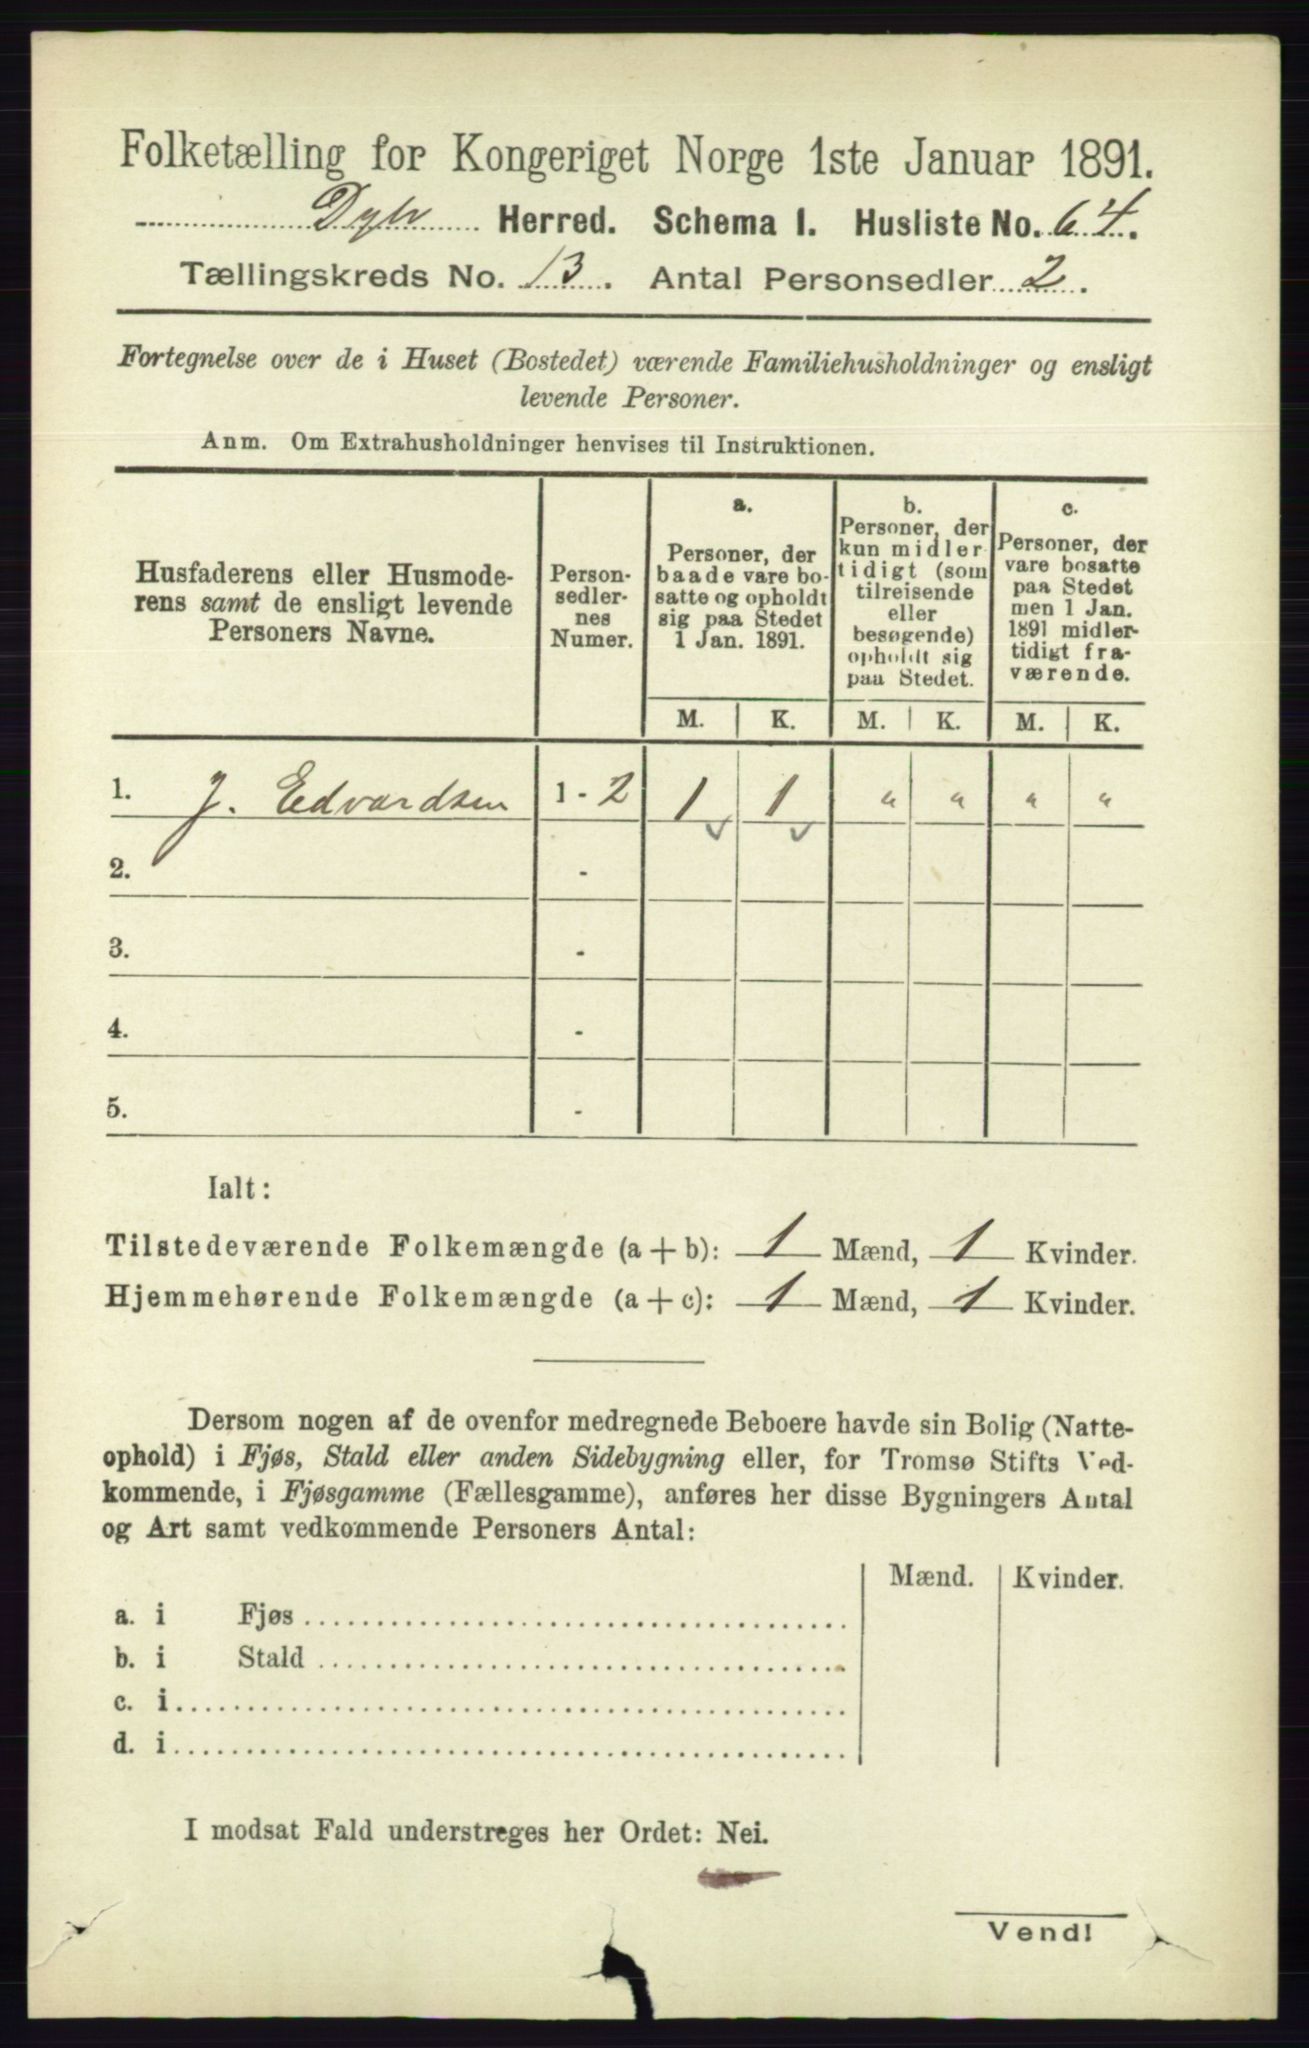 Folketælling for Kongeriget Norge 1ste Januar 1891.
Herred. Schema I. Husliste No. 64.
Tællingskreds No. 13. Antal Personsedler 2.
Fortegnelse over de i Huset (Bostedet) værende Familiehusholdninger og ensligt
levende Personer.
Anm. Om Extrahusholdninger henvises til Instruktionen.
Husfaderens eller Husmode-
rens samt de ensligt levende
Personers Navne.
Person-
sedler-
nes
Numer.
a.
Personer, der
baade vare bo-
satte og opholdt
sig paa Stedet
1 Jan. 1891.
b.
Personer, der
kun midler
tidigt (som
tilreisende
eller
besøgende)
opholdt sig
paa Stedet.
c.
Personer, der
vare bosatte
paa Stedet
men 1 Jan.
1891 midler-
tidigt fra-
værende.
M. K. M. K. M. K.
1. J. Edvardsen 1 - 2 1 1 " " " "
2. -
3. -
4. -
5. -
Ialt:
Tilstedeværende Folkemængde (a + b): 1 Mænd, 1 Kvinder.
Hjemmehørende Folkemængde (a + c): 1 Mænd, 1 Kvinder.
Dersom nogen af de ovenfor medregnede Beboere havde sin Bolig (Natte-
ophold) i Fjøs, Stald eller anden Sidebygning eller, for Tromsø Stifts Ved-
kommende, i Fjøsgamme (Fællesgamme), anføres her disse Bygningers Antal
og Art samt vedkommende Personers Antal:
Mænd. Kvinder.
a. i Fjøs
b. i Stald
c. i
d. i
I modsat Fald understreges her Ordet: Nei.
Vend!